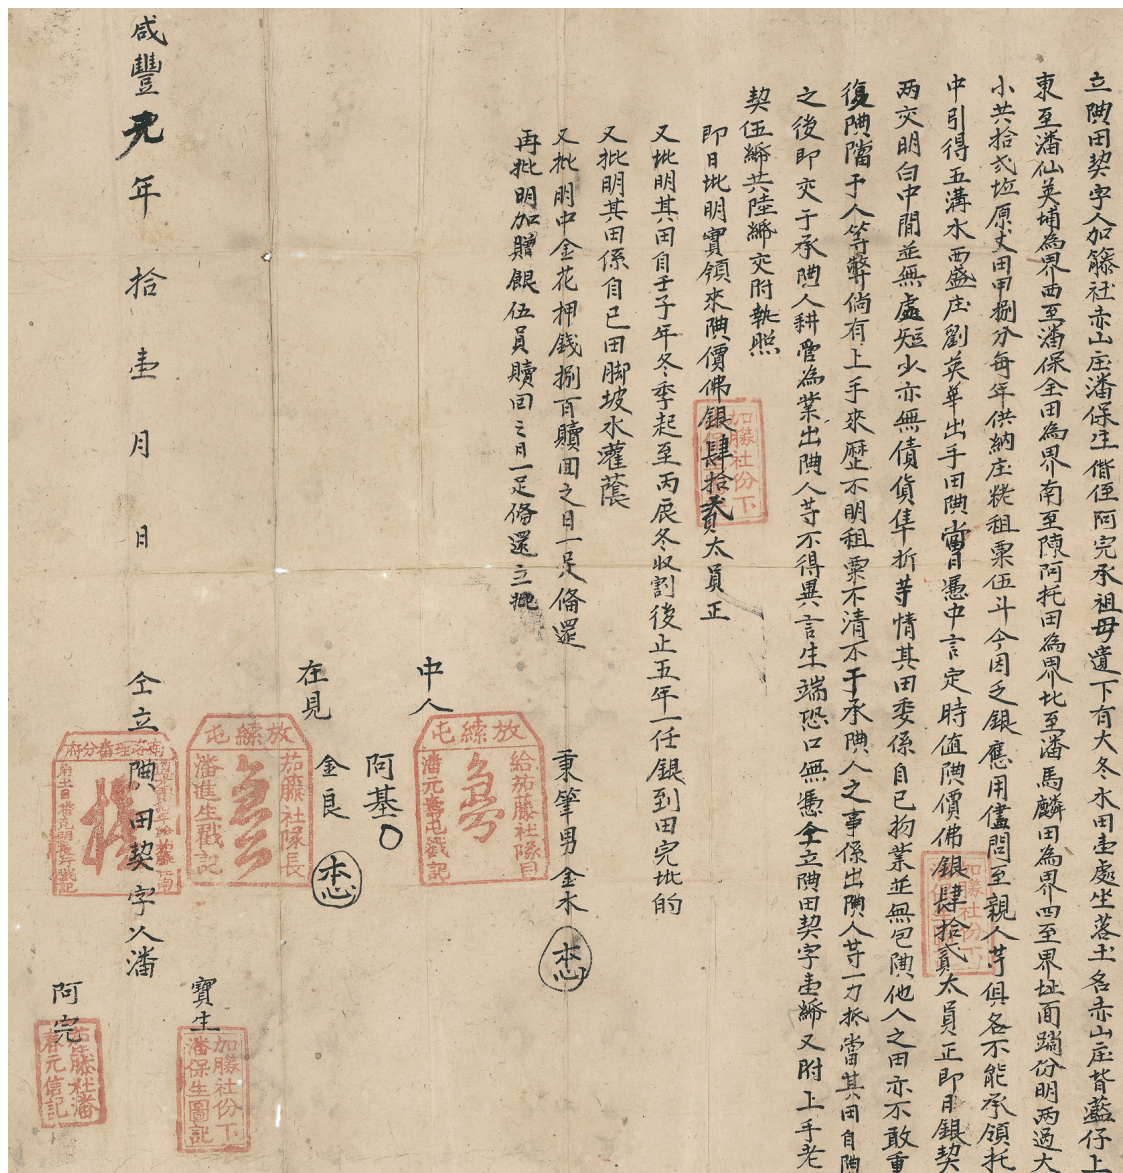 立典田契字人加籐社赤山庄潘保生偕侄阿完承祖母遺下有大冬水田壹處坐落土名赤山庄背藍仔上
東至潘仙英埔為界西至潘保全田為界南至陳阿托田為界北至潘馬麟田為界四至界址面踏份明兩過大
小共拾弍坵原丈田甲捌分每年供納庄耗租粟伍斗今因乏銀應用儘問至親人等俱各不能承領托
中引得五溝水西盛庄劉英華出手田典當日憑中言定時值典價佛銀肆拾弍大員正即日銀契
兩交明白中間並無處短少亦無債貨準折等情其田委係自己物業並無包典他人之田亦不敢重
復典擋于人等弊倘有上手來歷不明租粟不清不于承典人之事係出典人等一力抵當其田自典
之後即交于承典人耕管為業出典人等不得異言生端恐口無憑仝立典田契字壹紙又附上手老
契伍紙共陸紙交附執照
即日批明實領來典價佛銀肆拾貳大員正
又批明其田自壬子年冬季起至丙辰冬收割後止五年一任銀到田完批的
又批明其田係自己田脚坡水灌蔭
又批明中金花押錢捌百贖回之日一足俻還
再批明加贈銀伍員贖回之日一足俻還立批
秉筆男 金木
中人
阿基
在見 金良
仝立典田契字人潘
寶生
阿完
咸豐元年拾壹月 日
加籐社份下
放縤屯
給茄藤社隊目
潘元壽屯戳記
放縤屯
茄籐社隊長
潘進生戳記
加籐社份下
潘保生圖記